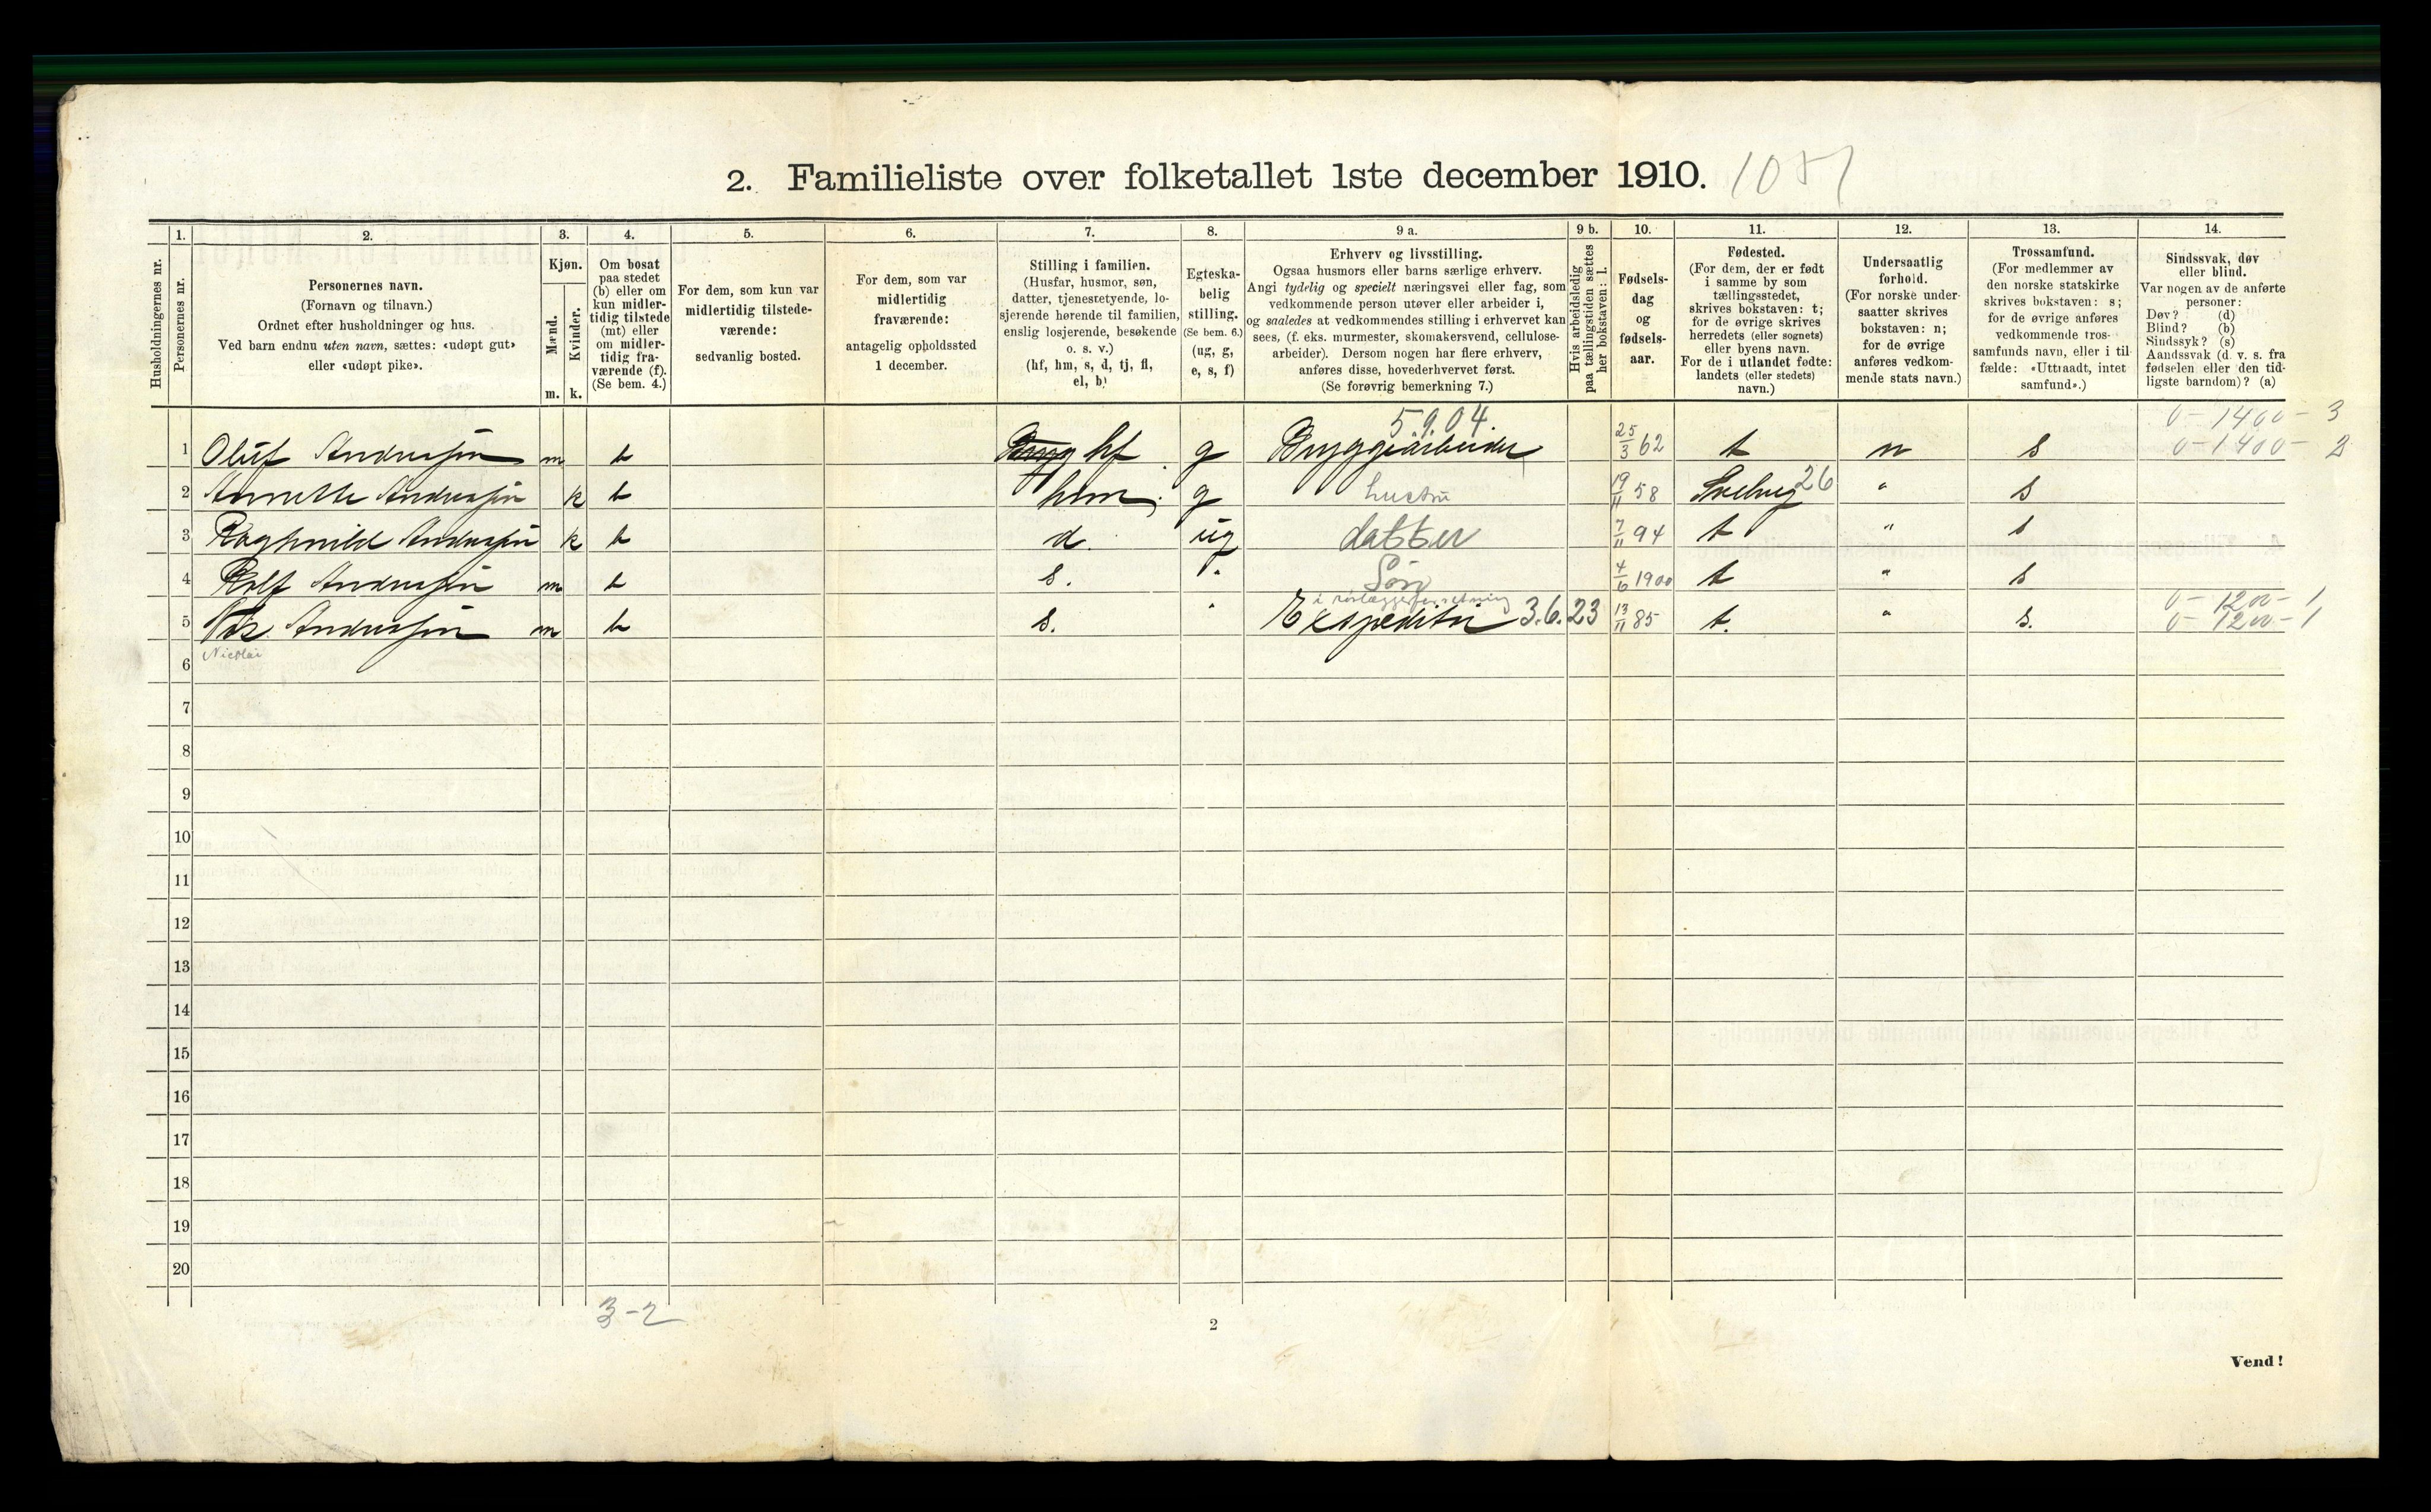 2. Familieliste over folketallet 1ste december 1910. 1051
Husholdningernes nr.
1.
Personernes nr.
2.
Personernes navn.
(Fornavn og tilnavn.)
Ordnet efter husholdninger og hus.
Ved barn endnu uten navn, sættes: «udøpt gut»
eller «udøpt pike».
3.
Kjøn.
Mænd.
m.
Kvinder.
k.
4.
Om bosat
paa stedet
(b) eller om
kun midler-
tidig tilstede
(mt) eller
om midler-
tidig fra-
værende (f).
(Se bem. 4.)
5.
For dem, som kun var
midlertidig tilstede-
værende:
sedvanlig bosted.
6.
For dem, som var
midlertidig
fraværende:
antagelig opholdssted
1 december.
7.
Stilling i familien.
(Husfar, husmor, søn,
datter, tjenestetyende, lo-
sjerende hørende til familien,
enslig losjerende, besøkende
o. s. v.)
(hf, hm, s, d, tj, fl,
el, b)
8.
Egteska-
belig
stilling.
(Se bem. 6.)
(ug, g,
e, s, f)
9 a.
Erhverv og livsstilling.
Ogsaa husmors eller barns særlige erhverv.
Angi tydelig og specielt næringsvei eller fag, som
vedkommende person utøver eller arbeider i,
og saaledes at vedkommendes stilling i erhvervet kan
sees, (f. eks. murmester, skomakersvend, cellulose-
arbeider). Dersom nogen har flere erhverv,
anføres disse, hovederhvervet først.
(Se forøvrig bemerkning 7.)
9 b.
Hvis arbeidsledig
paa tællingstiden sættes
her bokstaven: l.
10.
Fødsels-
dag
og
fødsels-
aar.
11.
Fødested.
(For dem, der er født
i samme by som
tællingsstedet,
skrives bokstaven: t;
for de øvrige skrives
herredets (eller sognets)
eller byens navn.
For de i utlandet fødte:
landets (eller stedets)
navn.)
12.
Undersaatlig
forhold.
(For norske under-
saatter skrives
bokstaven: n;
for de øvrige
anføres vedkom-
mende stats navn.)
13.
Trossamfund.
(For medlemmer av
den norske statskirke
skrives bokstaven: s;
for de øvrige anføres
vedkommende tros-
samfunds navn, eller i til-
fælde: «Uttraadt, intet
samfund».)
14.
Sindssvak, døv
eller blind.
Var nogen av de anførte
personer:
Døv? (d)
Blind? (b)
Sindssyk? (s)
Aandssvak (d. v. s. fra
fødselen eller den tid-
ligste barndom)? (a)
5.9.04. 0-1400-3
1 Oluf Andersen m b hf g Bryggearbeider 25/3 62 t n s 0-1400-2
2 Annette Andersen k b hm. g hustru 19/11 58 Svelvig 26 " s
3 Ragnhild Andersen k b d. ug datter 7/11 94 t " s
4 Rolf Andersen m b s. " Søn 4/6 1900 t " s
i rørlæggerforretning 0-1200-1
5 Nic. Andersen m b s. " Expeditør 3.6.23 13/11 85 t. " s. 0-1200-1
Nicolai
6
7
8
9
10
11
12
13
14
15
16
17
18
19
20
3-2
2
Vend!